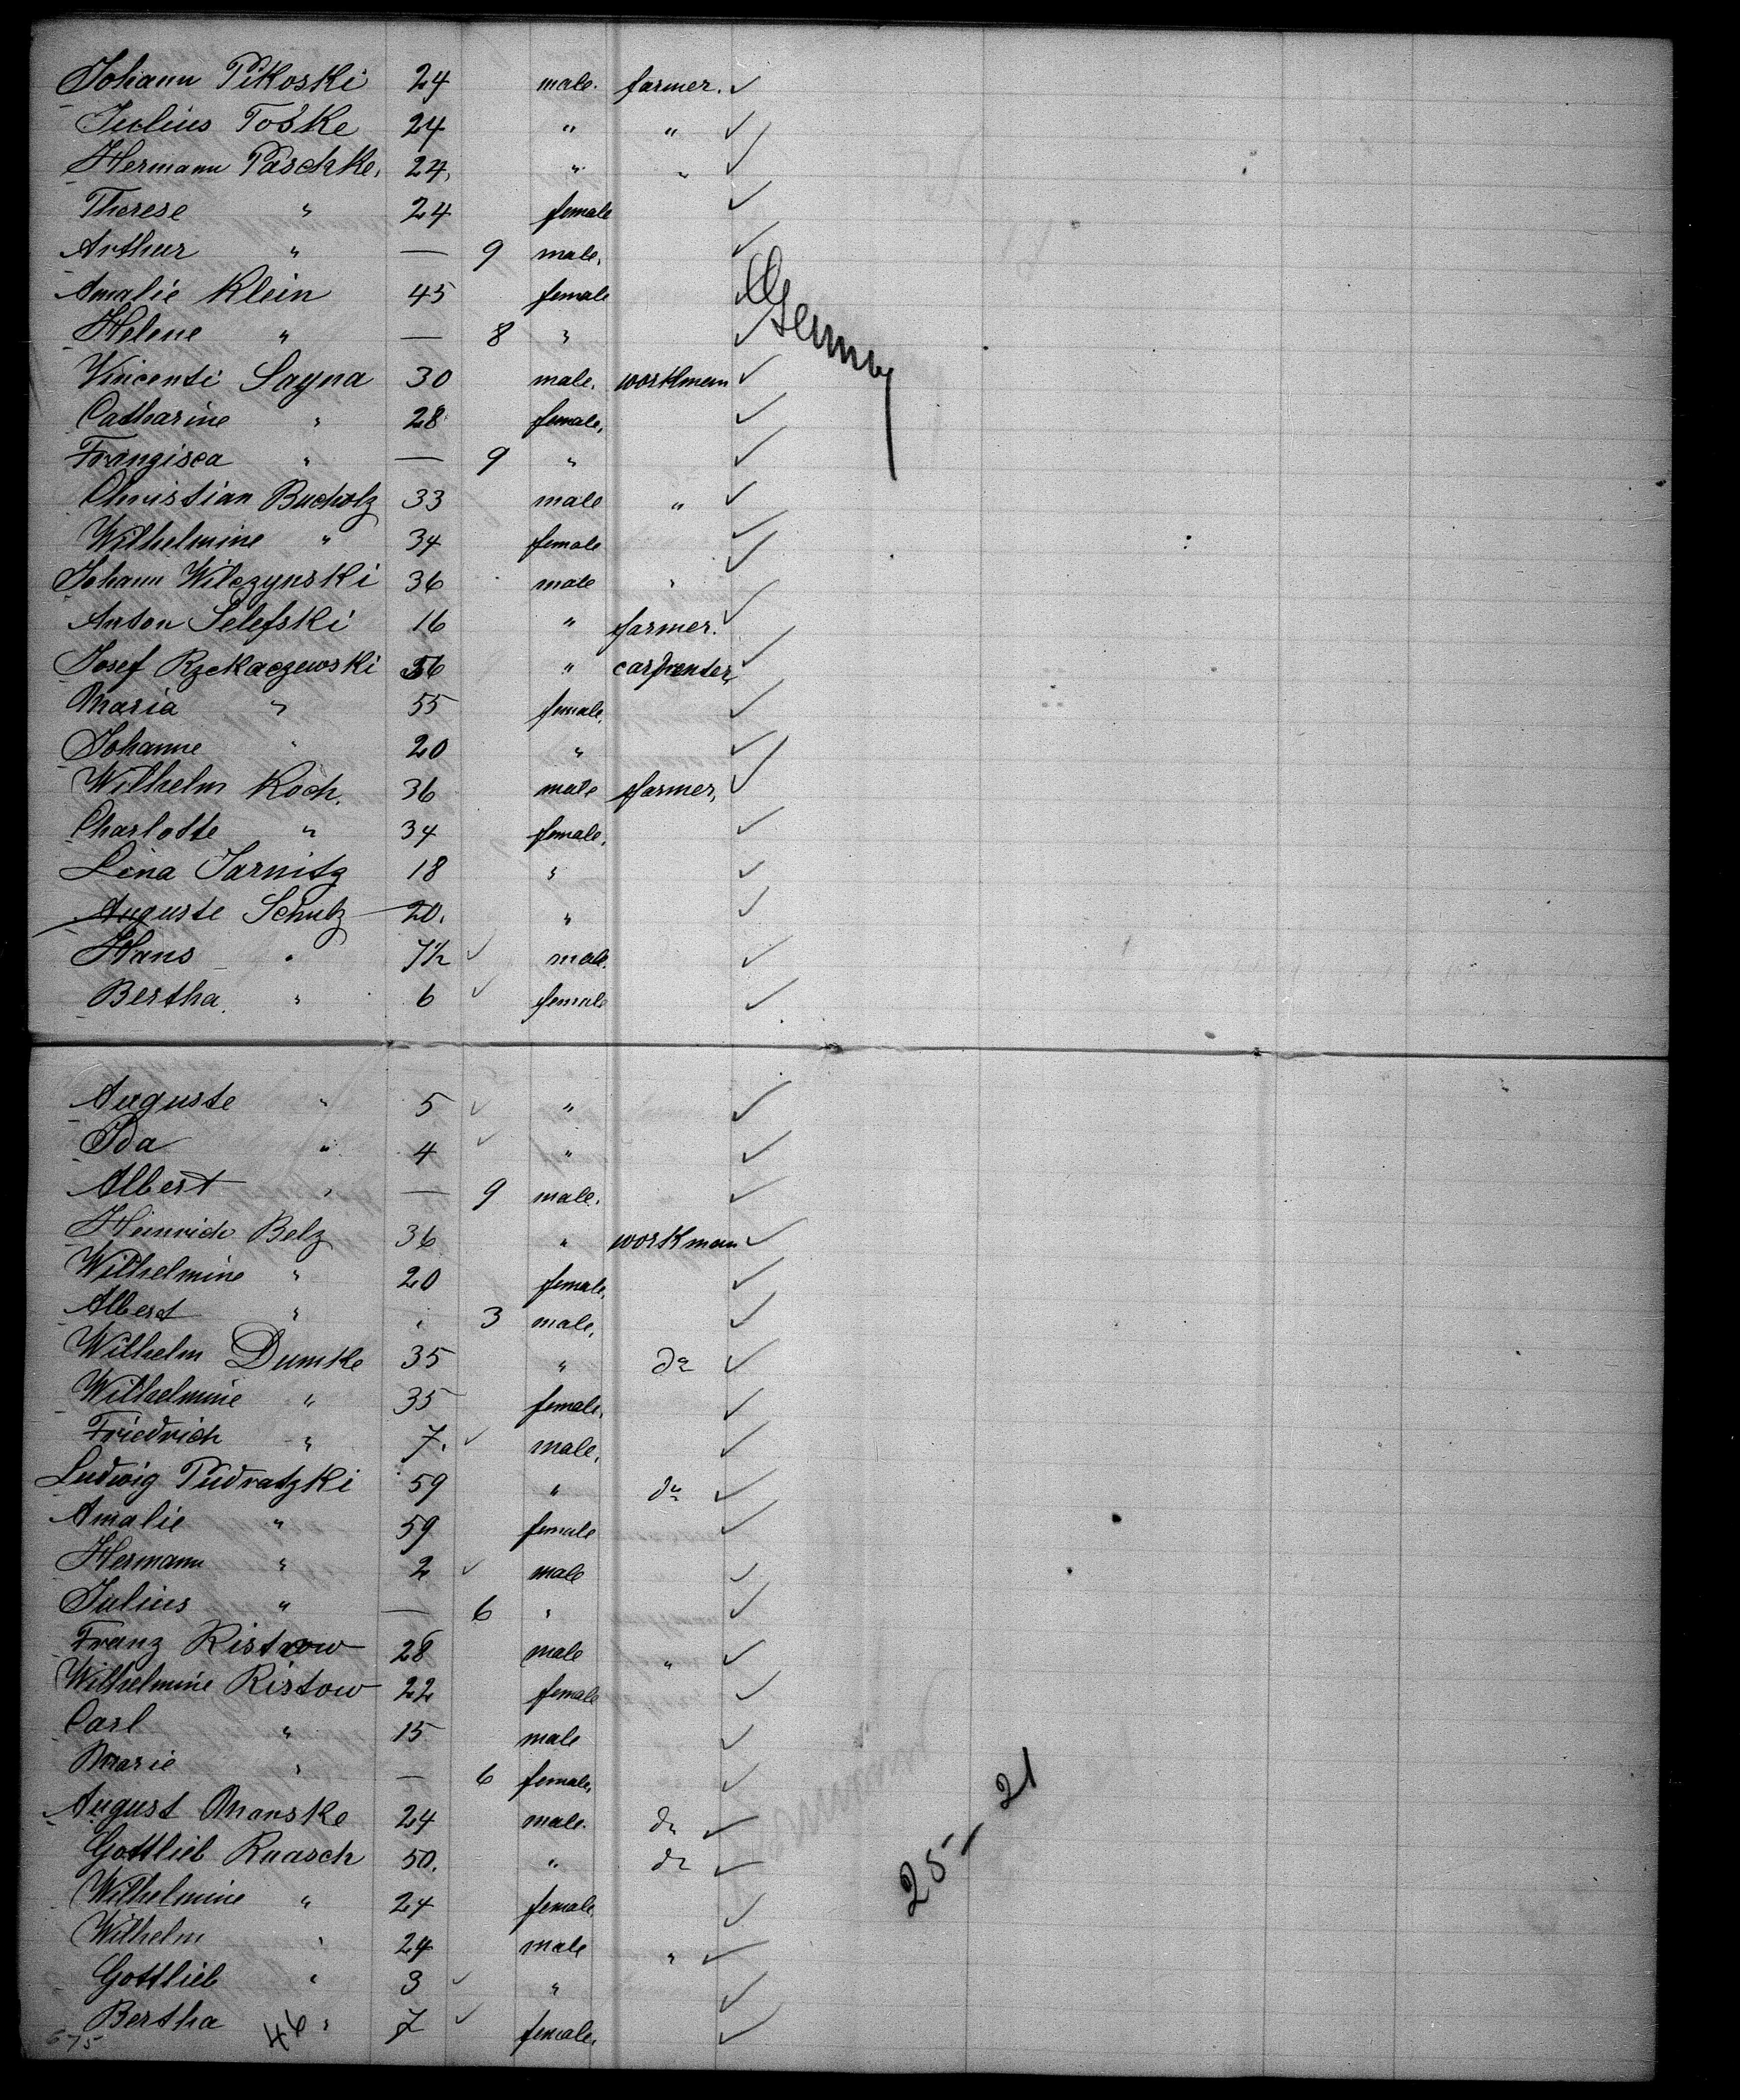 Johann Pikoski 24 male. farmer.
Julius Toske 24 " "
Hermann Paschke, 24, " "
Therese " 24 female
Arthur " — 9 male,
Amalie Klein 45 female
Helene " — 8 "
Germny
Vincenti Sayna 30 male, workmen
Catharine " 28 female,
Frangisca " — 9 "
Christian Bucholz 33 male "
Wilhelmine " 34 female
Johann Wilczynski 36 male "
Anton Selefski 16 " farmer.
Josef Rzekaczewski 56 " carpenter,
Maria " 55 female,
Johanne " 20 "
Wilhelm Koch. 36 male farmer,
Charlotte " 34 female,
Lina Jarnitz 18 "
Auguste Schulz 20. "
Hans " 7½ male.
Bertha. " 6 female
Auguste " 5 "
Ida " 4 "
Albert " — 9 male,
Heinrich Belz 36 " workman
Wilhelmine " 20 female,
Albert " 3 male,
Wilhelm Dumke 35 " do
Wilhelmine " 35 female,
Friedrich " 7. male,
Ludwig Pudratzki 59 " do
Amalie " 59 female
Hermann " 2 male
Julius " — 6 "
Franz Ristow 28 male "
Wilhelmine Ristow 22 female
Carl " 15 male
Marie " — 6 female,
August Manske 24 male. do
Gottlieb Raasch 50. " do
Wilhelmine " 24 female,
Wilhelm " 24 male "
Gottlieb " 3 "
Bertha " 7 female.
46
675
25-21